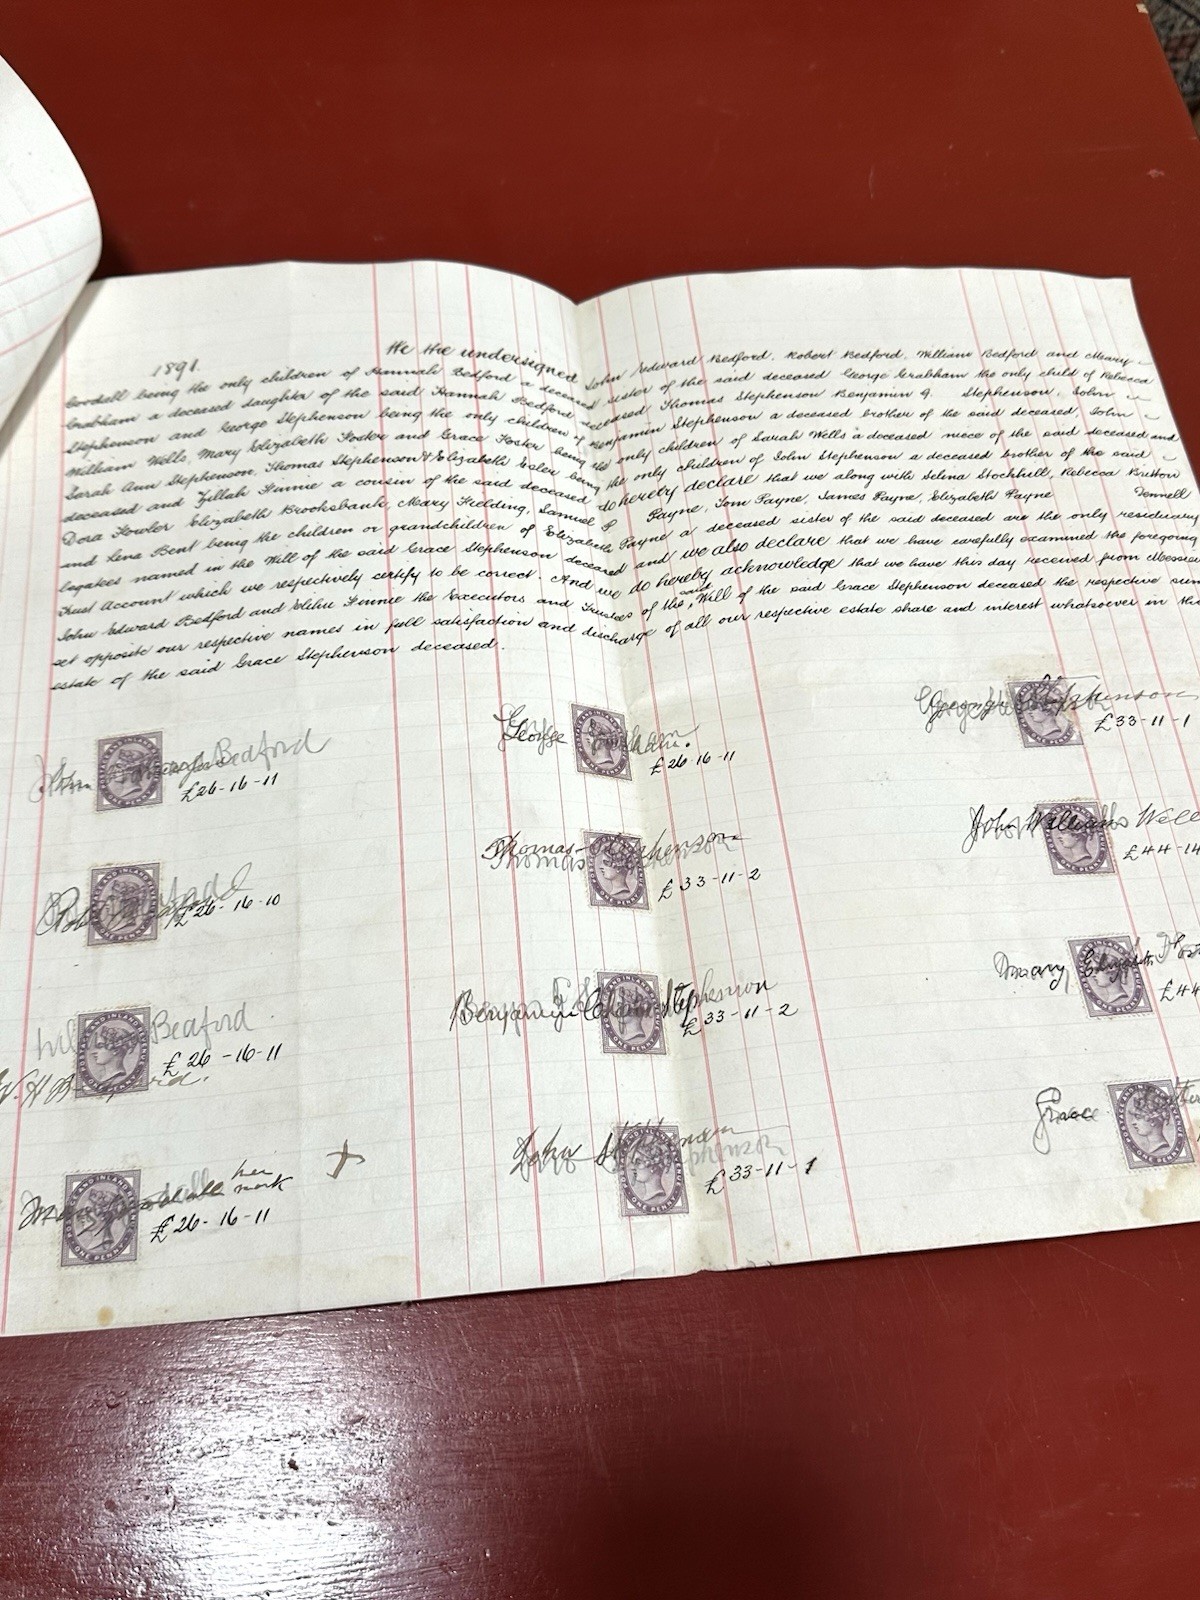 1891.
We the undersigned John Edward Bedford, Robert Bedford, William Bedford and Mary
Goodall being the only children of Hannah Bedford a deceased sister of the said deceased George Grabham the only child of Rebecca
Grabham a deceased daughter of the said Hannah Bedford deceased Thomas Stephenson Benjamin G. Stephenson, John
Stephenson and George Stephenson being the only children of Benjamin Stephenson a deceased brother of the said deceased, John
William Wells, Mary Elizabeth Foster and Grace Foster being the only children of Sarah Wells a deceased niece of the said deceased and
Sarah Ann Stephenson, Thomas Stephenson & Elizabeth Esler being the only children of John Stephenson a deceased brother of the said
deceased and Zillah Finnie a cousin of the said deceased do hereby declare that we along with Selina Stockhill, Rebecca Britton
Dora Fowler Elizabeth Brooksbank, Mary Fielding, Samuel P Payne, Tom Payne, James Payne, Elizabeth Payne Fennell
and Lena Bent being the children or grandchildren of Elizabeth Payne a deceased sister of the said deceased are the only residuary
legatees named in the Will of the said Grace Stephenson deceased and we also declare that we have carefully examined the foregoing
Trust Account which we respectively certify to be correct. And we do hereby acknowledge that we have this day received from Messieurs
John Edward Bedford and Elihu Finnie the Executors and Trustees of the said Will of the said Grace Stephenson deceased the respective sum
set opposite our respective names in full satisfaction and discharge of all our respective estate share and interest whatsoever in the
estate of the said Grace Stephenson deceased.
John Bedford
£26-16-11
George Grabham.
£26-16-11
George Stephenson
£33-11-1
£26-16-10
Thomas Stephenson
£33-11-2
John William Well
£44-14
William Bedford
£26-16-11
W. H. Bedford.
Benjamin Stephenson
£33-11-2
Mary Elizabeth
£44
Mary Goodall her
mark
£26-16-11
John Stephenson
£33-11-1
Grace
POSTAGE AND INLAND REVENUE
ONE PENNY